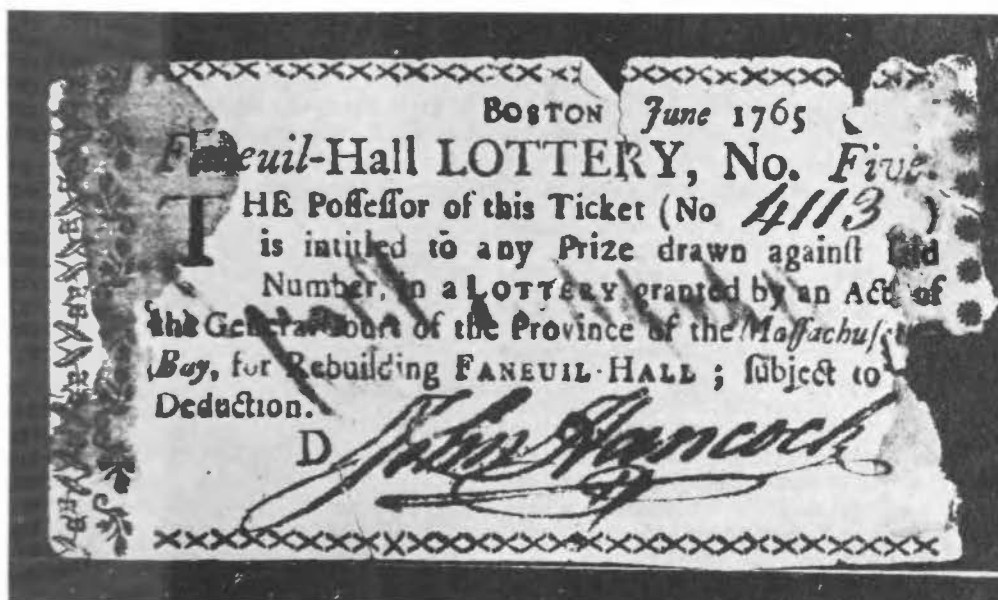 BOSTON June 1765
Faneuil-Hall LOTTERY, No. Five.
THE Poſſeſſor of this Ticket (No 4113)
is intitled to any Prize drawn againſt ſaid
Number, in a LOTTERY granted by an Act of
the General Court of the Province of the Maſſachuſetts
Bay, for Rebuilding FANEUIL-HALL; ſubject to
Deduction.
D John Hancock